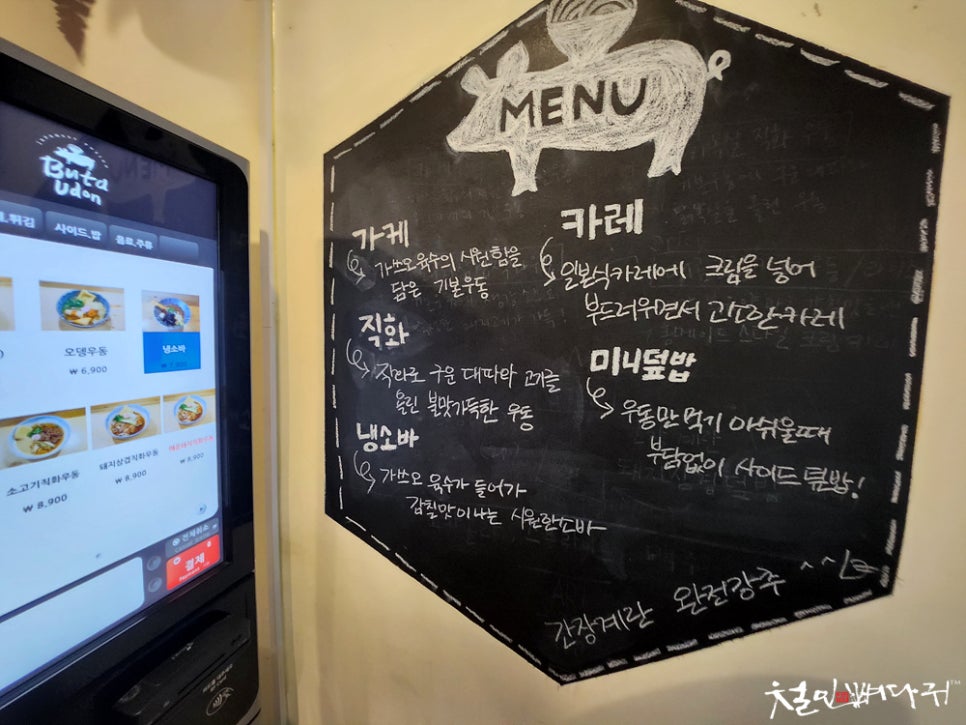 Buta
Udon
튀김
사이드.밥
음료.주류
오뎅우동
₩ 6,900
냉소바
소고기직화우동
₩ 8,900
돼지삼겹직화우동
₩ 8,900
매운돼지직화우동
₩ 8,900
전체취소
결제
MENU
가케
가쓰오육수의 시원함을
담은 기본우동
직화
직화로 구운 대파와 고기를
올린 불맛가득한 우동
냉소바
가쓰오 육수가 들어가
감칠맛이나는 시원한소바
카레
일본식카레에 크림을 넣어
부드러우면서 고소한카레
미니덮밥
우동만 먹기 아쉬울때
부담없이 사이드 덮밥!
간장계란 완전강추 ^^
철민뼈다귀™